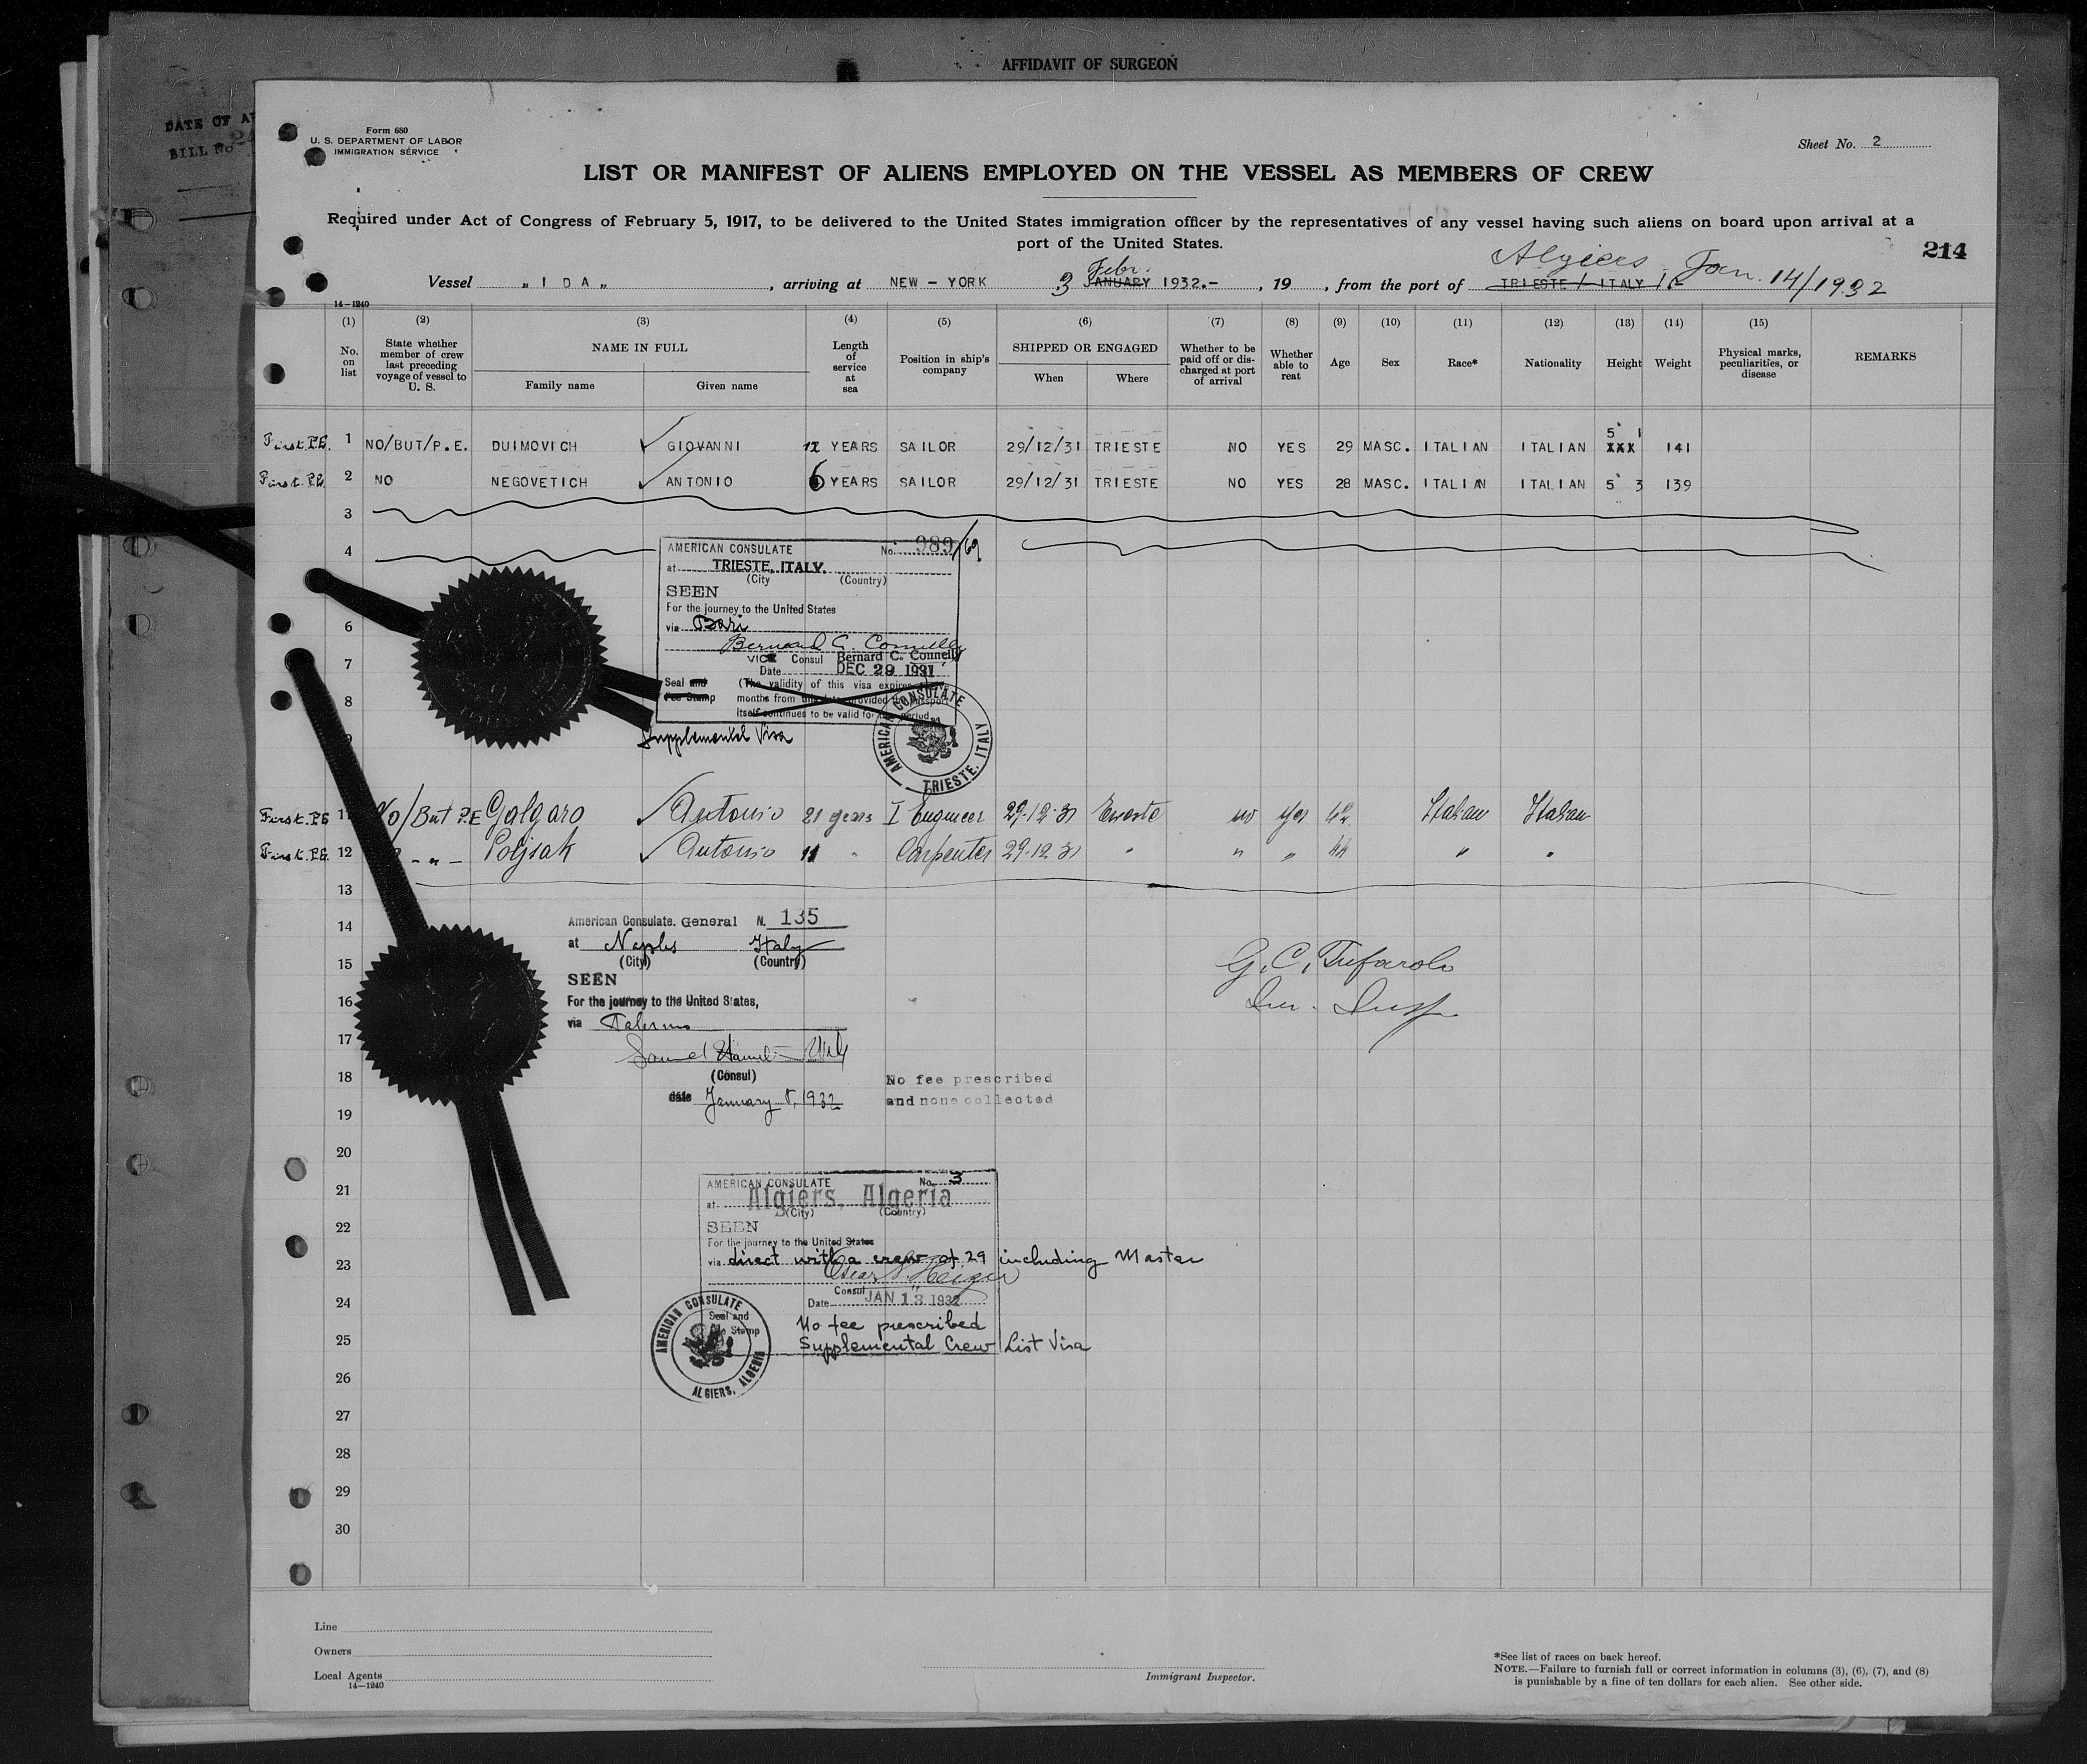 AFFIDAVIT OF SURGEON
DATE OF
BILL No
Form 680
U. S. DEPARTMENT OF LABOR
IMMIGRATION SERVICE
Sheet No. 2
LIST OR MANIFEST OF ALIENS EMPLOYED ON THE VESSEL AS MEMBERS OF CREW
Required under Act of Congress of February 5, 1917, to be delivered to the United States immigration officer by the representatives of any vessel having such aliens on board upon arrival at a
port of the United States.
214
Febr. Algiers Jan. 14/1932
Vessel „ I D A „ , arriving at NEW - YORK 3 JANUARY 1932.- , 19 , from the port of TRIESTE / ITALY
14-1240
(1) (2) (3) (4) (5) (6) (7) (8) (9) (10) (11) (12) (13) (14) (15)
No. on list
State whether member of crew last preceding voyage of vessel to U. S.
NAME IN FULL
Family name Given name
Length of service at sea
Position in ship's company
SHIPPED OR ENGAGED
When Where
Whether to be paid off or discharged at port of arrival
Whether able to reat
Age Sex Race* Nationality Height Weight
Physical marks, peculiarities, or disease
REMARKS
First. P.E. 1 NO/BUT/P.E. DUIMOVICH GIOVANNI 12 YEARS SAILOR 29/12/31 TRIESTE NO YES 29 MASC. ITALIAN ITALIAN 5' 1 XXX 141
First. P.E. 2 NO NEGOVETICH ANTONIO 6 YEARS SAILOR 29/12/31 TRIESTE NO YES 28 MASC. ITALIAN ITALIAN 5' 3 139
3
4
AMERICAN CONSULATE No. 989/69
at TRIESTE, ITALY.
(City (Country)
SEEN
For the journey to the United States
6 via Bari
Bernard C. Connelly
7 VICE Consul Bernard C. Connelly
Date DEC 29 1931
Seal and (The validity of this visa expires
8 Fee Stamp months from this date provided the passport
itself continues to be valid for that period.
9 Supplemental Visa
AMERICAN CONSULATE TRIESTE, ITALY
First. P.E. 11 No/But P.E Galgaro Antonio 21 years I Engineer 29-12-31 Trieste no yes 42 Italian Italian
First. P.E. 12 - „ - Poljsak Antonio 11 „ Carpenter 29-12-31 „ „ „ 44 „ „
13
14 American Consulate. General N. 135
at Naples Italy
15 (City) (Country)
SEEN
16 For the journey to the United States,
via Palermo
17
18 (Consul)
date January 8, 1932
19
No fee prescribed
and none collected
G. C. Tufarolo
Im. Insp.
20
21 AMERICAN CONSULATE No. 3
at Algiers, Algeria
(City) (Country)
22 SEEN
For the journey to the United States
23 via direct with a crew of 29 including Master
24 Consul
Date JAN 13 1932
Seal and
Fee Stamp
No fee prescribed
25 Supplemental Crew List Visa
AMERICAN CONSULATE ALGIERS, ALGERIA
26
27
28
29
30
Line
Owners
Local Agents
14-1240
Immigrant Inspector.
*See list of races on back hereof.
NOTE.—Failure to furnish full or correct information in columns (3), (6), (7), and (8)
is punishable by a fine of ten dollars for each alien. See other side.